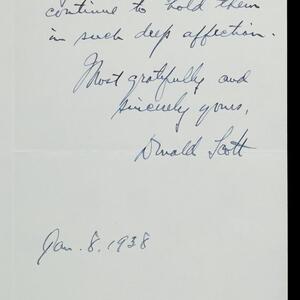 continue to hold them
in such deep affection.
Most gratefully and
sincerely yours,
Donald Scott
Jan. 8. 1938